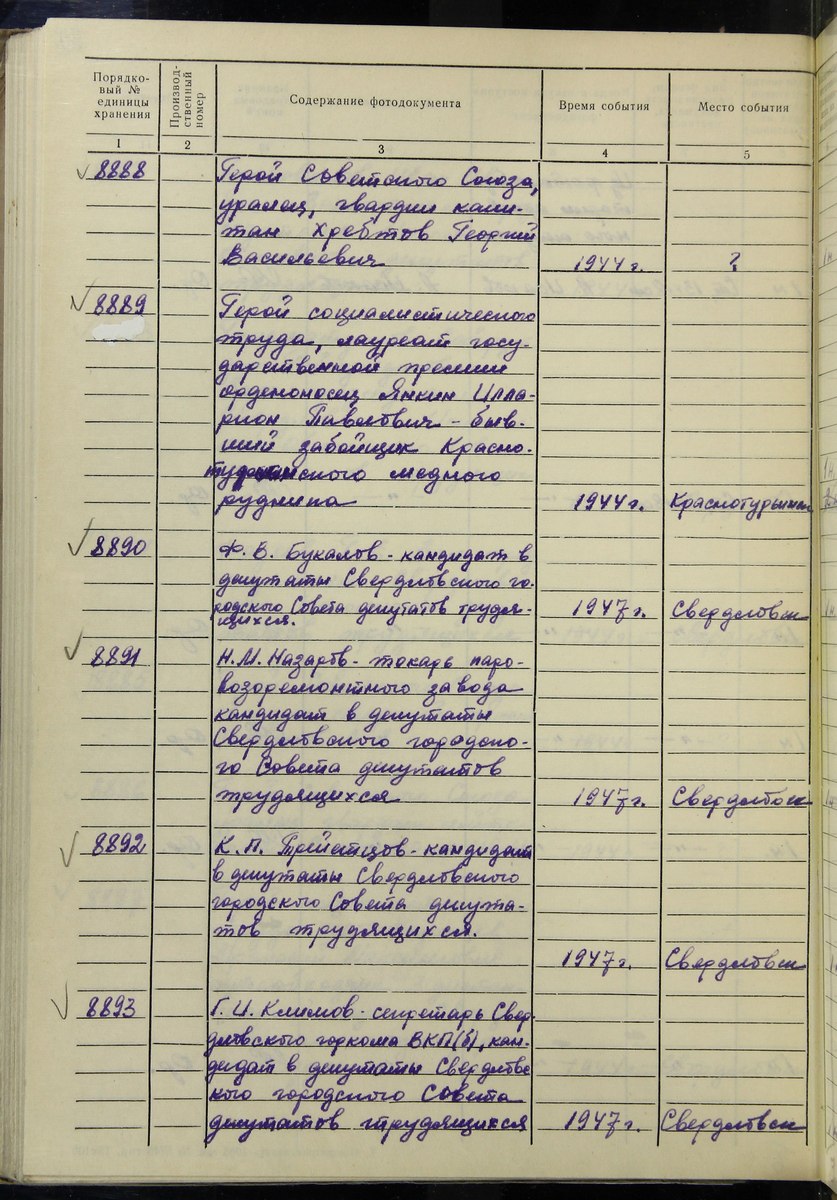 Порядко-
вый №
единицы
хранения
Производ-
ственный
номер
Содержание фотодокумента
Время события
Место события
1
2
3
4
5
8888
Герой Советского Союза,
уралец, гвардии капи-
тан Хребтов Георгий
Васильевич
1944 г.
?
8889
Герой социалистического
труда, лауреат госу-
дарственной премии
орденоносец Янкин Илла-
рион Павлович - быв-
ший забойщик Красно-
турьинского медного
рудника
1944 г.
Краснотурьинск
8890
Ф. В. Букалов - кандидат в
депутаты Свердловского го-
родского Совета депутатов трудя-
щихся.
1947 г.
Свердловск
8891
Н. М. Назаров - токарь паро-
возоремонтного завода
кандидат в депутаты
Свердловского городско-
го Совета депутатов
трудящихся
1947 г.
Свердловск
8892
К. П. - кандидат
в депутаты Свердловского
городского Совета депута-
тов трудящихся.
1947 г.
Свердловск
8893
Г. И. Климов - секретарь Свер-
дловского горкома ВКП(б), кан-
дидат в депутаты Свердловс
кого городского Совета
депутатов трудящихся
1947 г.
Свердловск